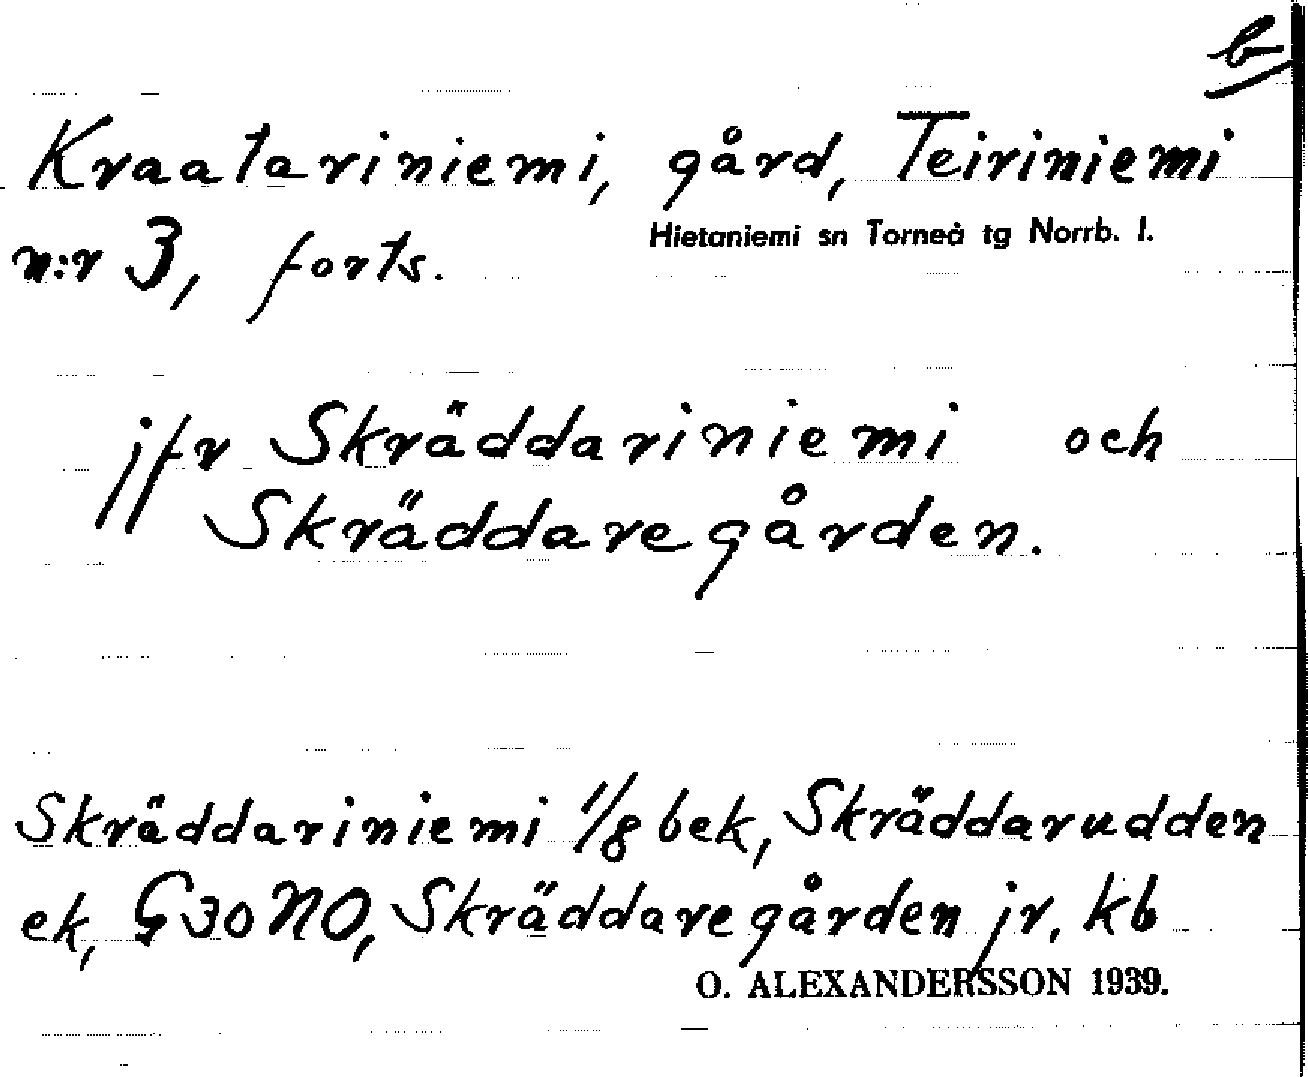 b
Kraatariniemi, gård, Teiriniemi
Hietaniemi sn Torneå tg Norrb. l.
n:r 3, forts.
jfr Skräddariniemi och
Skräddaregården.
Skräddariniemi 1/8 bek, Skräddarudden
ek, G30NO, Skräddaregården jr, kb
O. ALEXANDERSSON 1939.